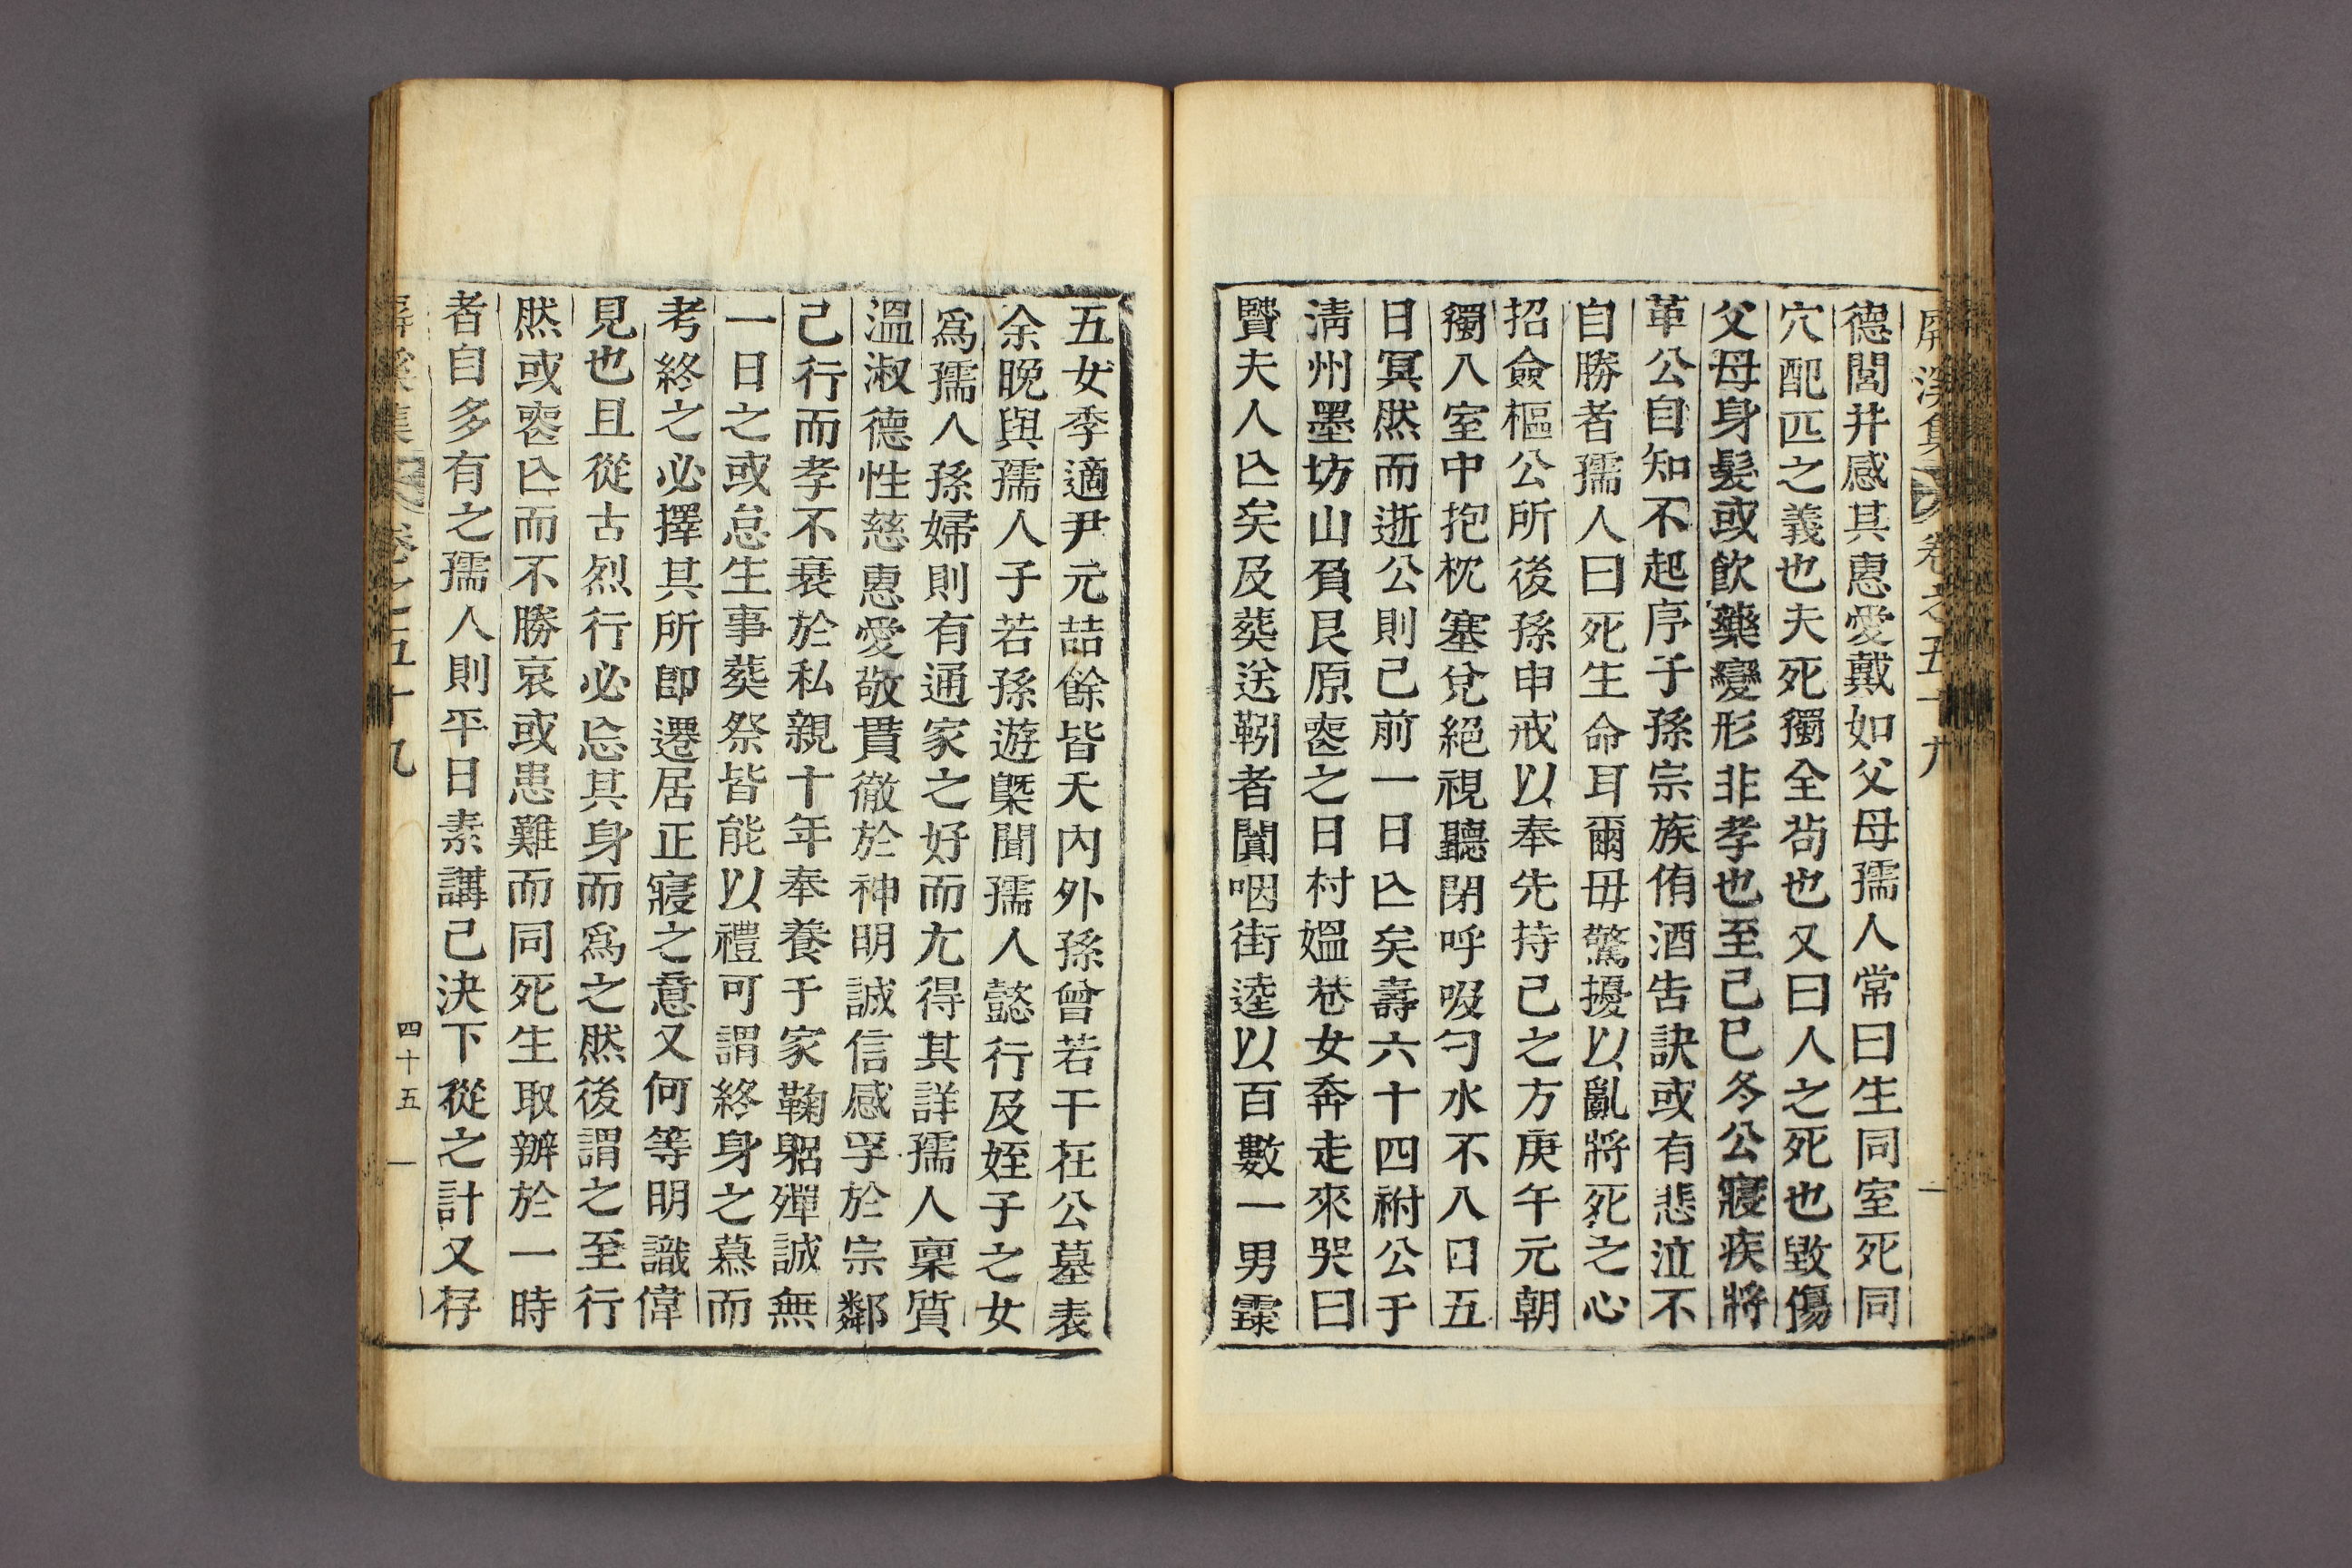 屛溪集 卷之五十九
德閭井感其惠愛戴如父母孺人常曰生同室死同
穴配匹之義也夫死獨全茍也又曰人之死也毀傷
父母身髮或飮藥變形非孝也至己巳冬公寢疾將
革公自知不起序子孫宗族侑酒告訣或有悲泣不
自勝者孺人曰死生命耳爾毋驚擾以亂將死之心
招僉樞公所後孫申戒以奉先持己之方庚午元朝
獨入室中抱枕塞兌絕視聽閉呼吸勺水不入口五
日冥然而逝公則已前一日亾矣壽六十四祔公于
淸州墨坊山負艮原窆之日村媼巷女奔走來哭曰
賢夫人亾矣及葬送靷者闐咽街逵以百數一男霂
五女季適尹元喆餘皆夭內外孫曾若干在公墓表
余晚與孺人子若孫遊槩聞孺人懿行及姪子之女
爲孺人孫婦則有通家之好而尤得其詳孺人稟質
溫淑德性慈惠愛敬貫徹於神明誠信感孚於宗鄰
己行而孝不衰於私親十年奉養于家鞠躳殫誠無
一日之或怠生事葬祭皆能以禮可謂終身之慕而
考終之必擇其所卽遷居正寢之意又何等明識偉
見也且從古烈行必忘其身而爲之然後謂之至行
然或喪亾而不勝哀或患難而同死生取辦於一時
者自多有之孺人則平日素講己決下從之計又存
屛溪集 卷之五十九 四十五